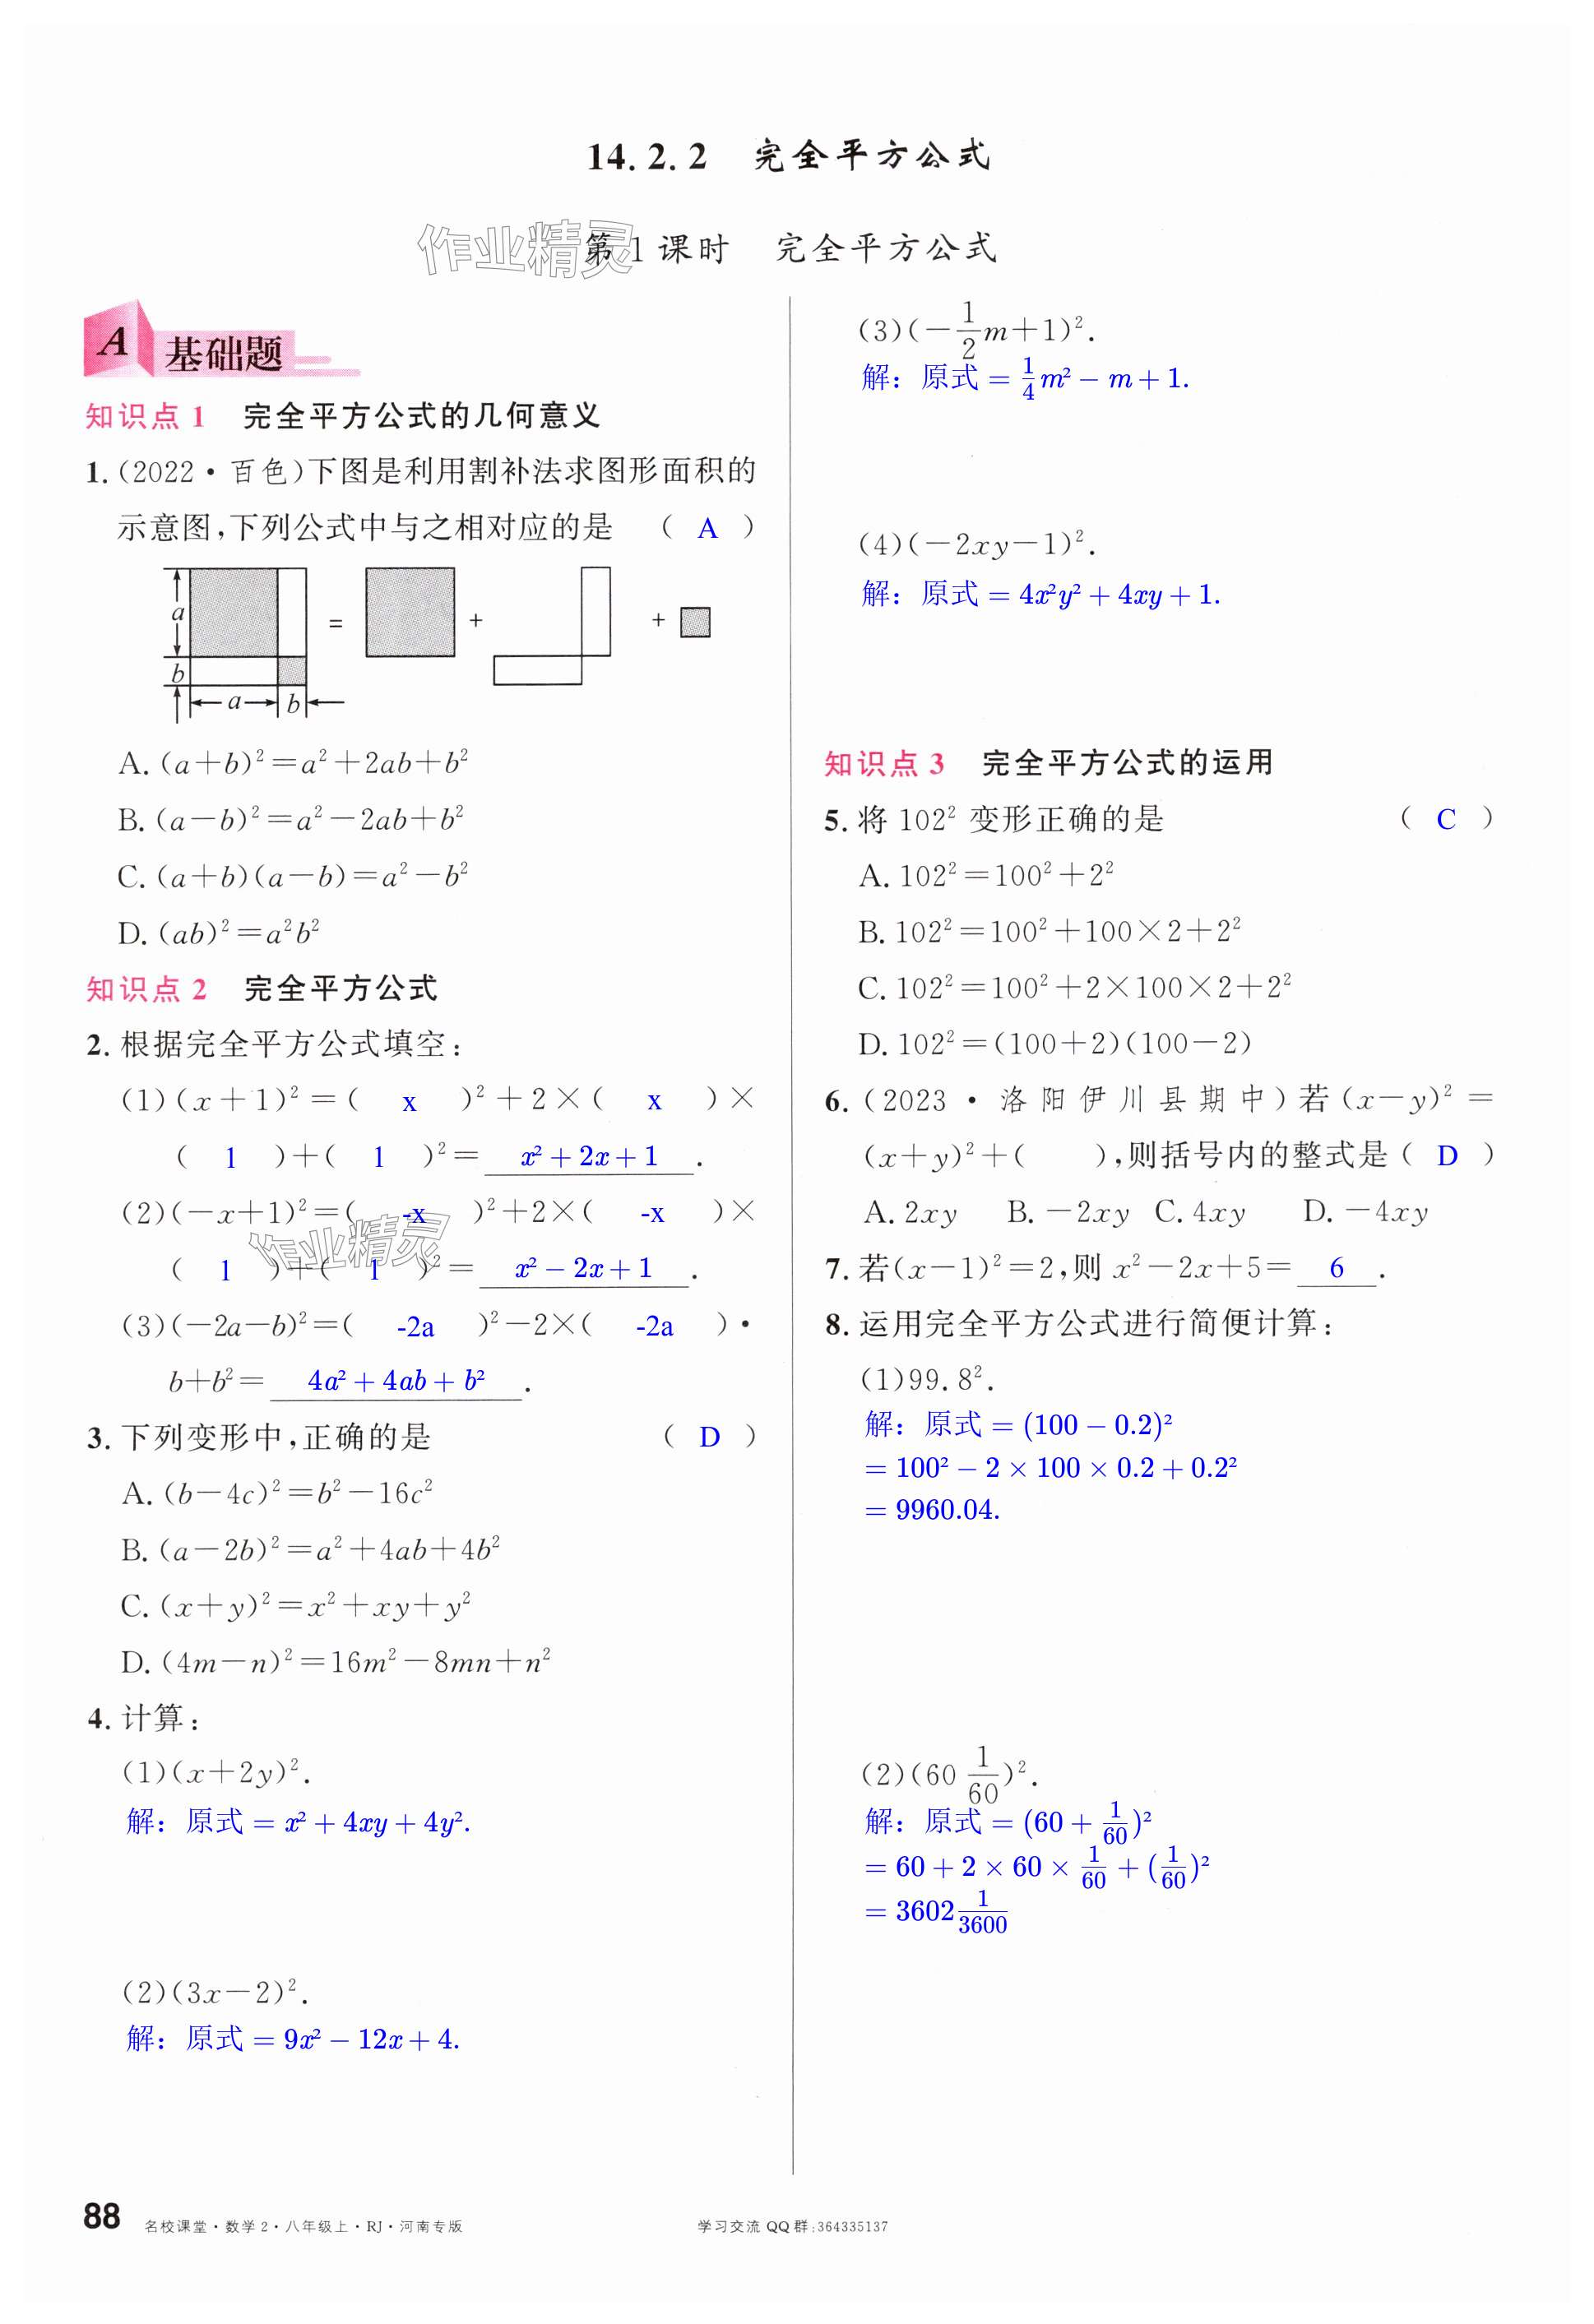 14.2.2 完全平方公式
作业精灵
第1课时 完全平方公式
A 基础题
知识点1 完全平方公式的几何意义
1.(2022·百色)下图是利用割补法求图形面积的
示意图,下列公式中与之相对应的是 ( A )
a
b
a b
= + +
A.(a+b)²=a²+2ab+b²
B.(a-b)²=a²-2ab+b²
C.(a+b)(a-b)=a²-b²
D.(ab)²=a²b²
知识点2 完全平方公式
2.根据完全平方公式填空:
(1)(x+1)²=( x )²+2×( x )×
( 1 )+( 1 )²= x²+2x+1 .
(2)(-x+1)²=( -x )²+2×( -x )×
作业精灵
( 1 )+( 1 )²= x²-2x+1 .
(3)(-2a-b)²=( -2a )²-2×( -2a )·
b+b²= 4a²+4ab+b² .
3.下列变形中,正确的是 ( D )
A.(b-4c)²=b²-16c²
B.(a-2b)²=a²+4ab+4b²
C.(x+y)²=x²+xy+y²
D.(4m-n)²=16m²-8mn+n²
4.计算:
(1)(x+2y)².
解:原式=x²+4xy+4y².
(2)(3x-2)².
解:原式=9x²-12x+4.
(3)(-1/2m+1)².
解:原式=1/4m²-m+1.
(4)(-2xy-1)².
解:原式=4x²y²+4xy+1.
知识点3 完全平方公式的运用
5.将102²变形正确的是 ( C )
A.102²=100²+2²
B.102²=100²+100×2+2²
C.102²=100²+2×100×2+2²
D.102²=(100+2)(100-2)
6.(2023·洛阳伊川县期中)若(x-y)²=
(x+y)²+( ),则括号内的整式是( D )
A.2xy B.-2xy C.4xy D.-4xy
7.若(x-1)²=2,则x²-2x+5= 6 .
8.运用完全平方公式进行简便计算:
(1)99.8².
解:原式=(100-0.2)²
=100²-2×100×0.2+0.2²
=9960.04.
(2)(60 1/60)².
解:原式=(60+1/60)²
=60+2×60×1/60+(1/60)²
=3602 1/3600
88 名校课堂·数学2·八年级上·RJ·河南专版 学习交流QQ群:364335137